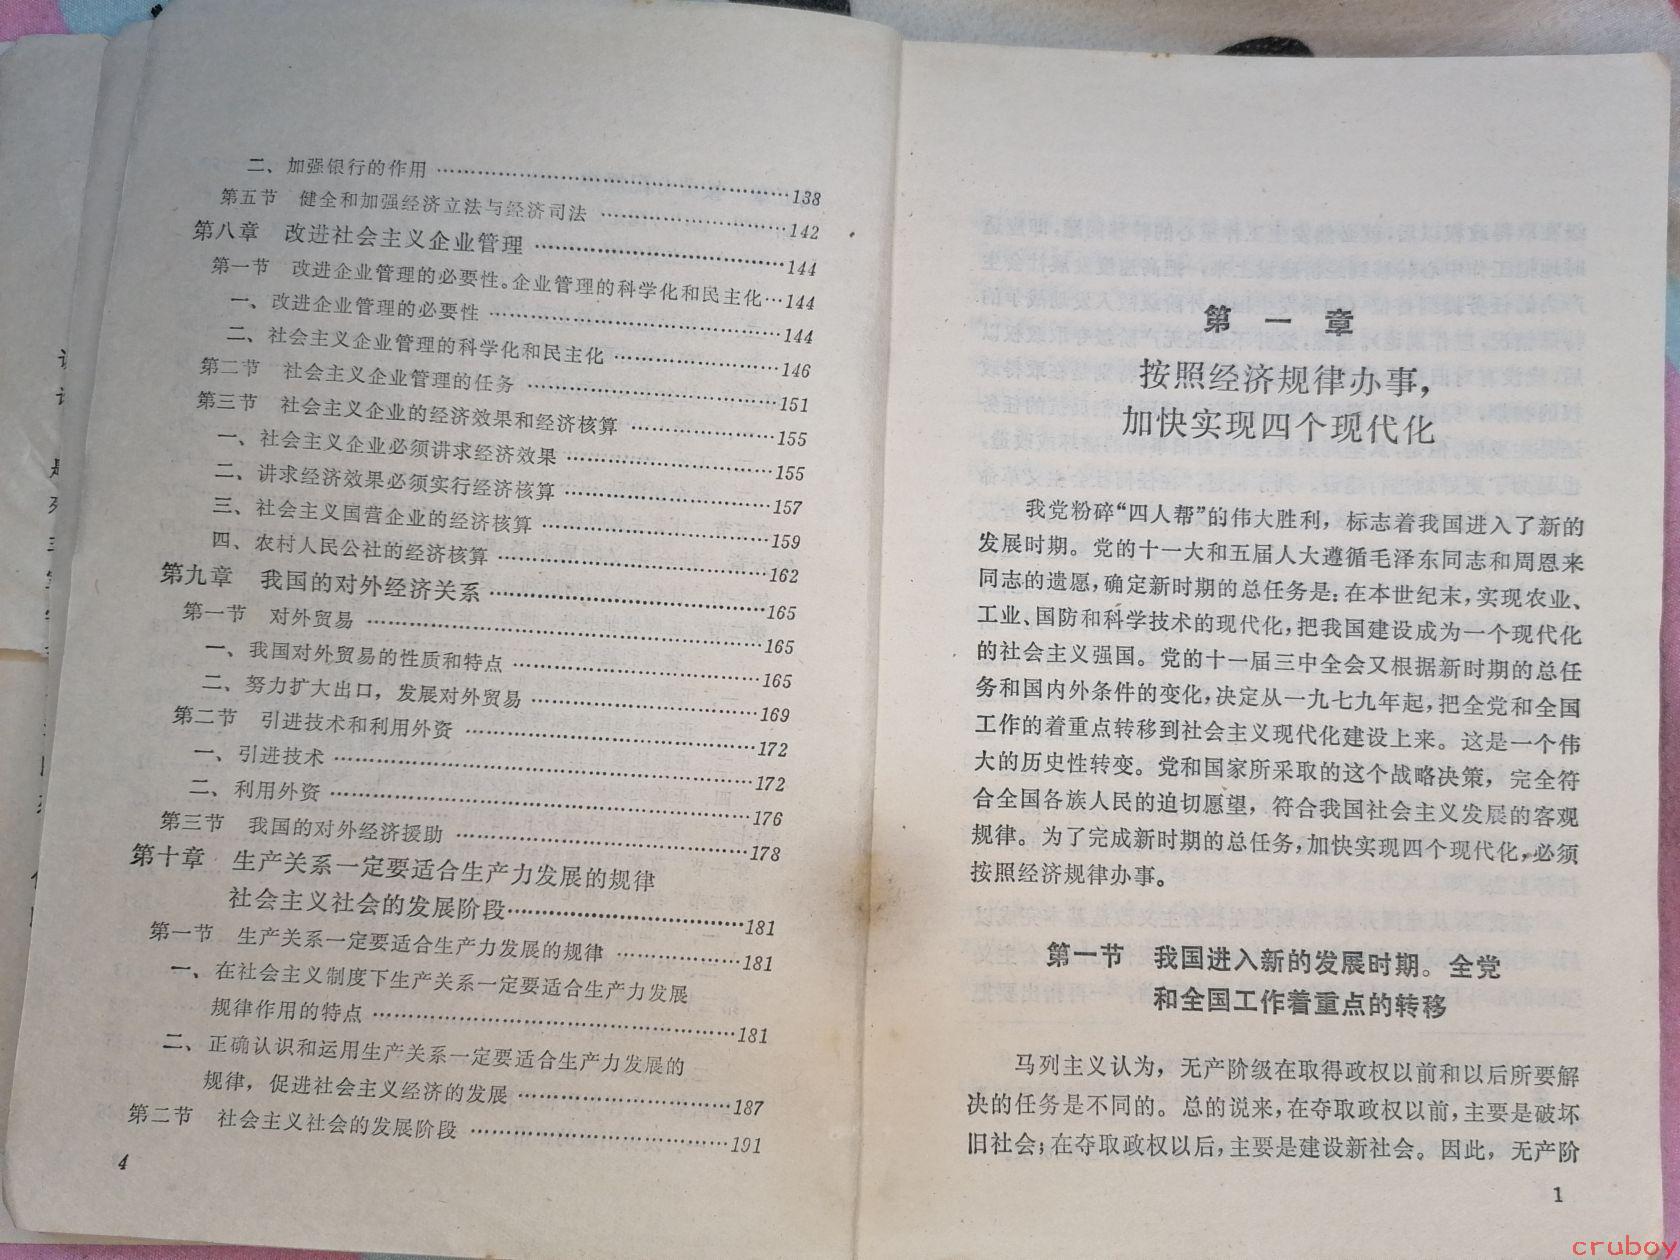 二、加强银行的作用……138
第五节 健全和加强经济立法与经济司法……142
第八章 改进社会主义企业管理……144
第一节 改进企业管理的必要性。企业管理的科学化和民主化…144
一、改进企业管理的必要性……144
二、社会主义企业管理的科学化和民主化……146
第二节 社会主义企业管理的任务……151
第三节 社会主义企业的经济效果和经济核算……155
一、社会主义企业必须讲求经济效果……155
二、讲求经济效果必须实行经济核算……157
三、社会主义国营企业的经济核算……159
四、农村人民公社的经济核算……162
第九章 我国的对外经济关系……165
第一节 对外贸易……165
一、我国对外贸易的性质和特点……165
二、努力扩大出口，发展对外贸易……169
第二节 引进技术和利用外资……172
一、引进技术……172
二、利用外资……176
第三节 我国的对外经济援助……178
第十章 生产关系一定要适合生产力发展的规律
社会主义社会的发展阶段……181
第一节 生产关系一定要适合生产力发展的规律……181
一、在社会主义制度下生产关系一定要适合生产力发展
规律作用的特点……181
二、正确认识和运用生产关系一定要适合生产力发展的
规律，促进社会主义经济的发展……187
第二节 社会主义社会的发展阶段……191
4
第一章
按照经济规律办事，
加快实现四个现代化
我党粉碎“四人帮”的伟大胜利，标志着我国进入了新的
发展时期。党的十一大和五届人大遵循毛泽东同志和周恩来
同志的遗愿，确定新时期的总任务是：在本世纪末，实现农业、
工业、国防和科学技术的现代化，把我国建设成为一个现代化
的社会主义强国。党的十一届三中全会又根据新时期的总任
务和国内外条件的变化，决定从一九七九年起，把全党和全国
工作的着重点转移到社会主义现代化建设上来。这是一个伟
大的历史性转变。党和国家所采取的这个战略决策，完全符
合全国各族人民的迫切愿望，符合我国社会主义发展的客观
规律。为了完成新时期的总任务，加快实现四个现代化，必须
按照经济规律办事。
第一节 我国进入新的发展时期。全党
和全国工作着重点的转移
马列主义认为，无产阶级在取得政权以前和以后所要解
决的任务是不同的。总的说来，在夺取政权以前，主要是破坏
旧社会；在夺取政权以后，主要是建设新社会。因此，无产阶
1
cruboy